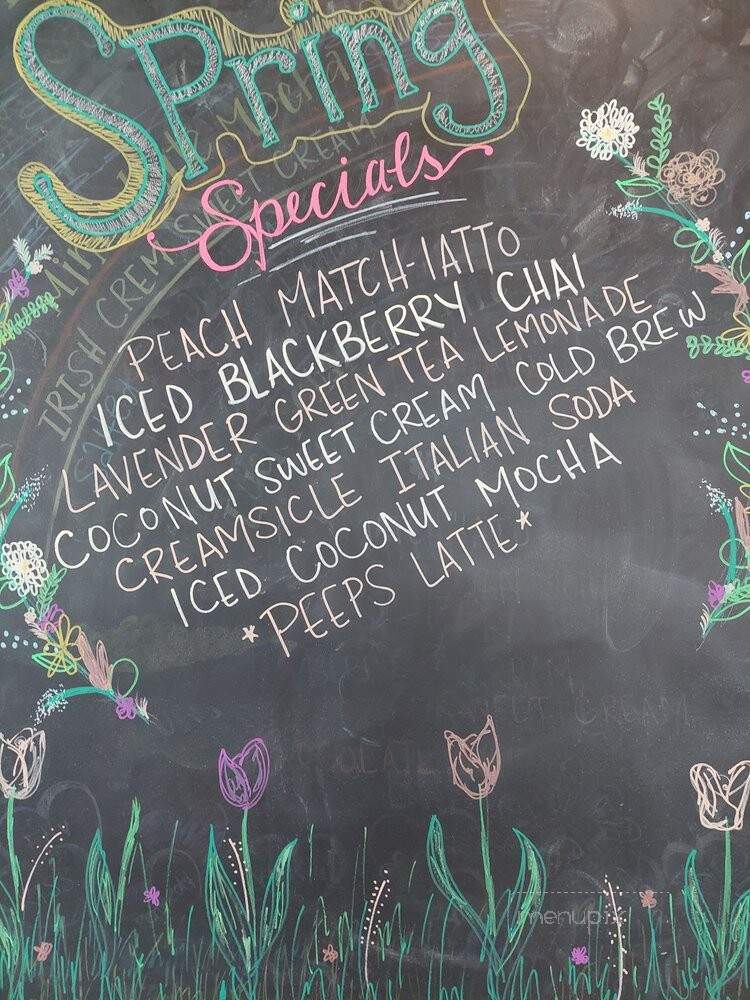 Spring
Specials
PEACH MATCH-IATTO
ICED BLACKBERRY CHAI
LAVENDER GREEN TEA LEMONADE
COCONUT SWEET CREAM COLD BREW
CREAMSICLE ITALIAN SODA
ICED COCONUT MOCHA
*PEEPS LATTE*
IRISH CREM SWEET CREAM
SWEET CREAM
menupix